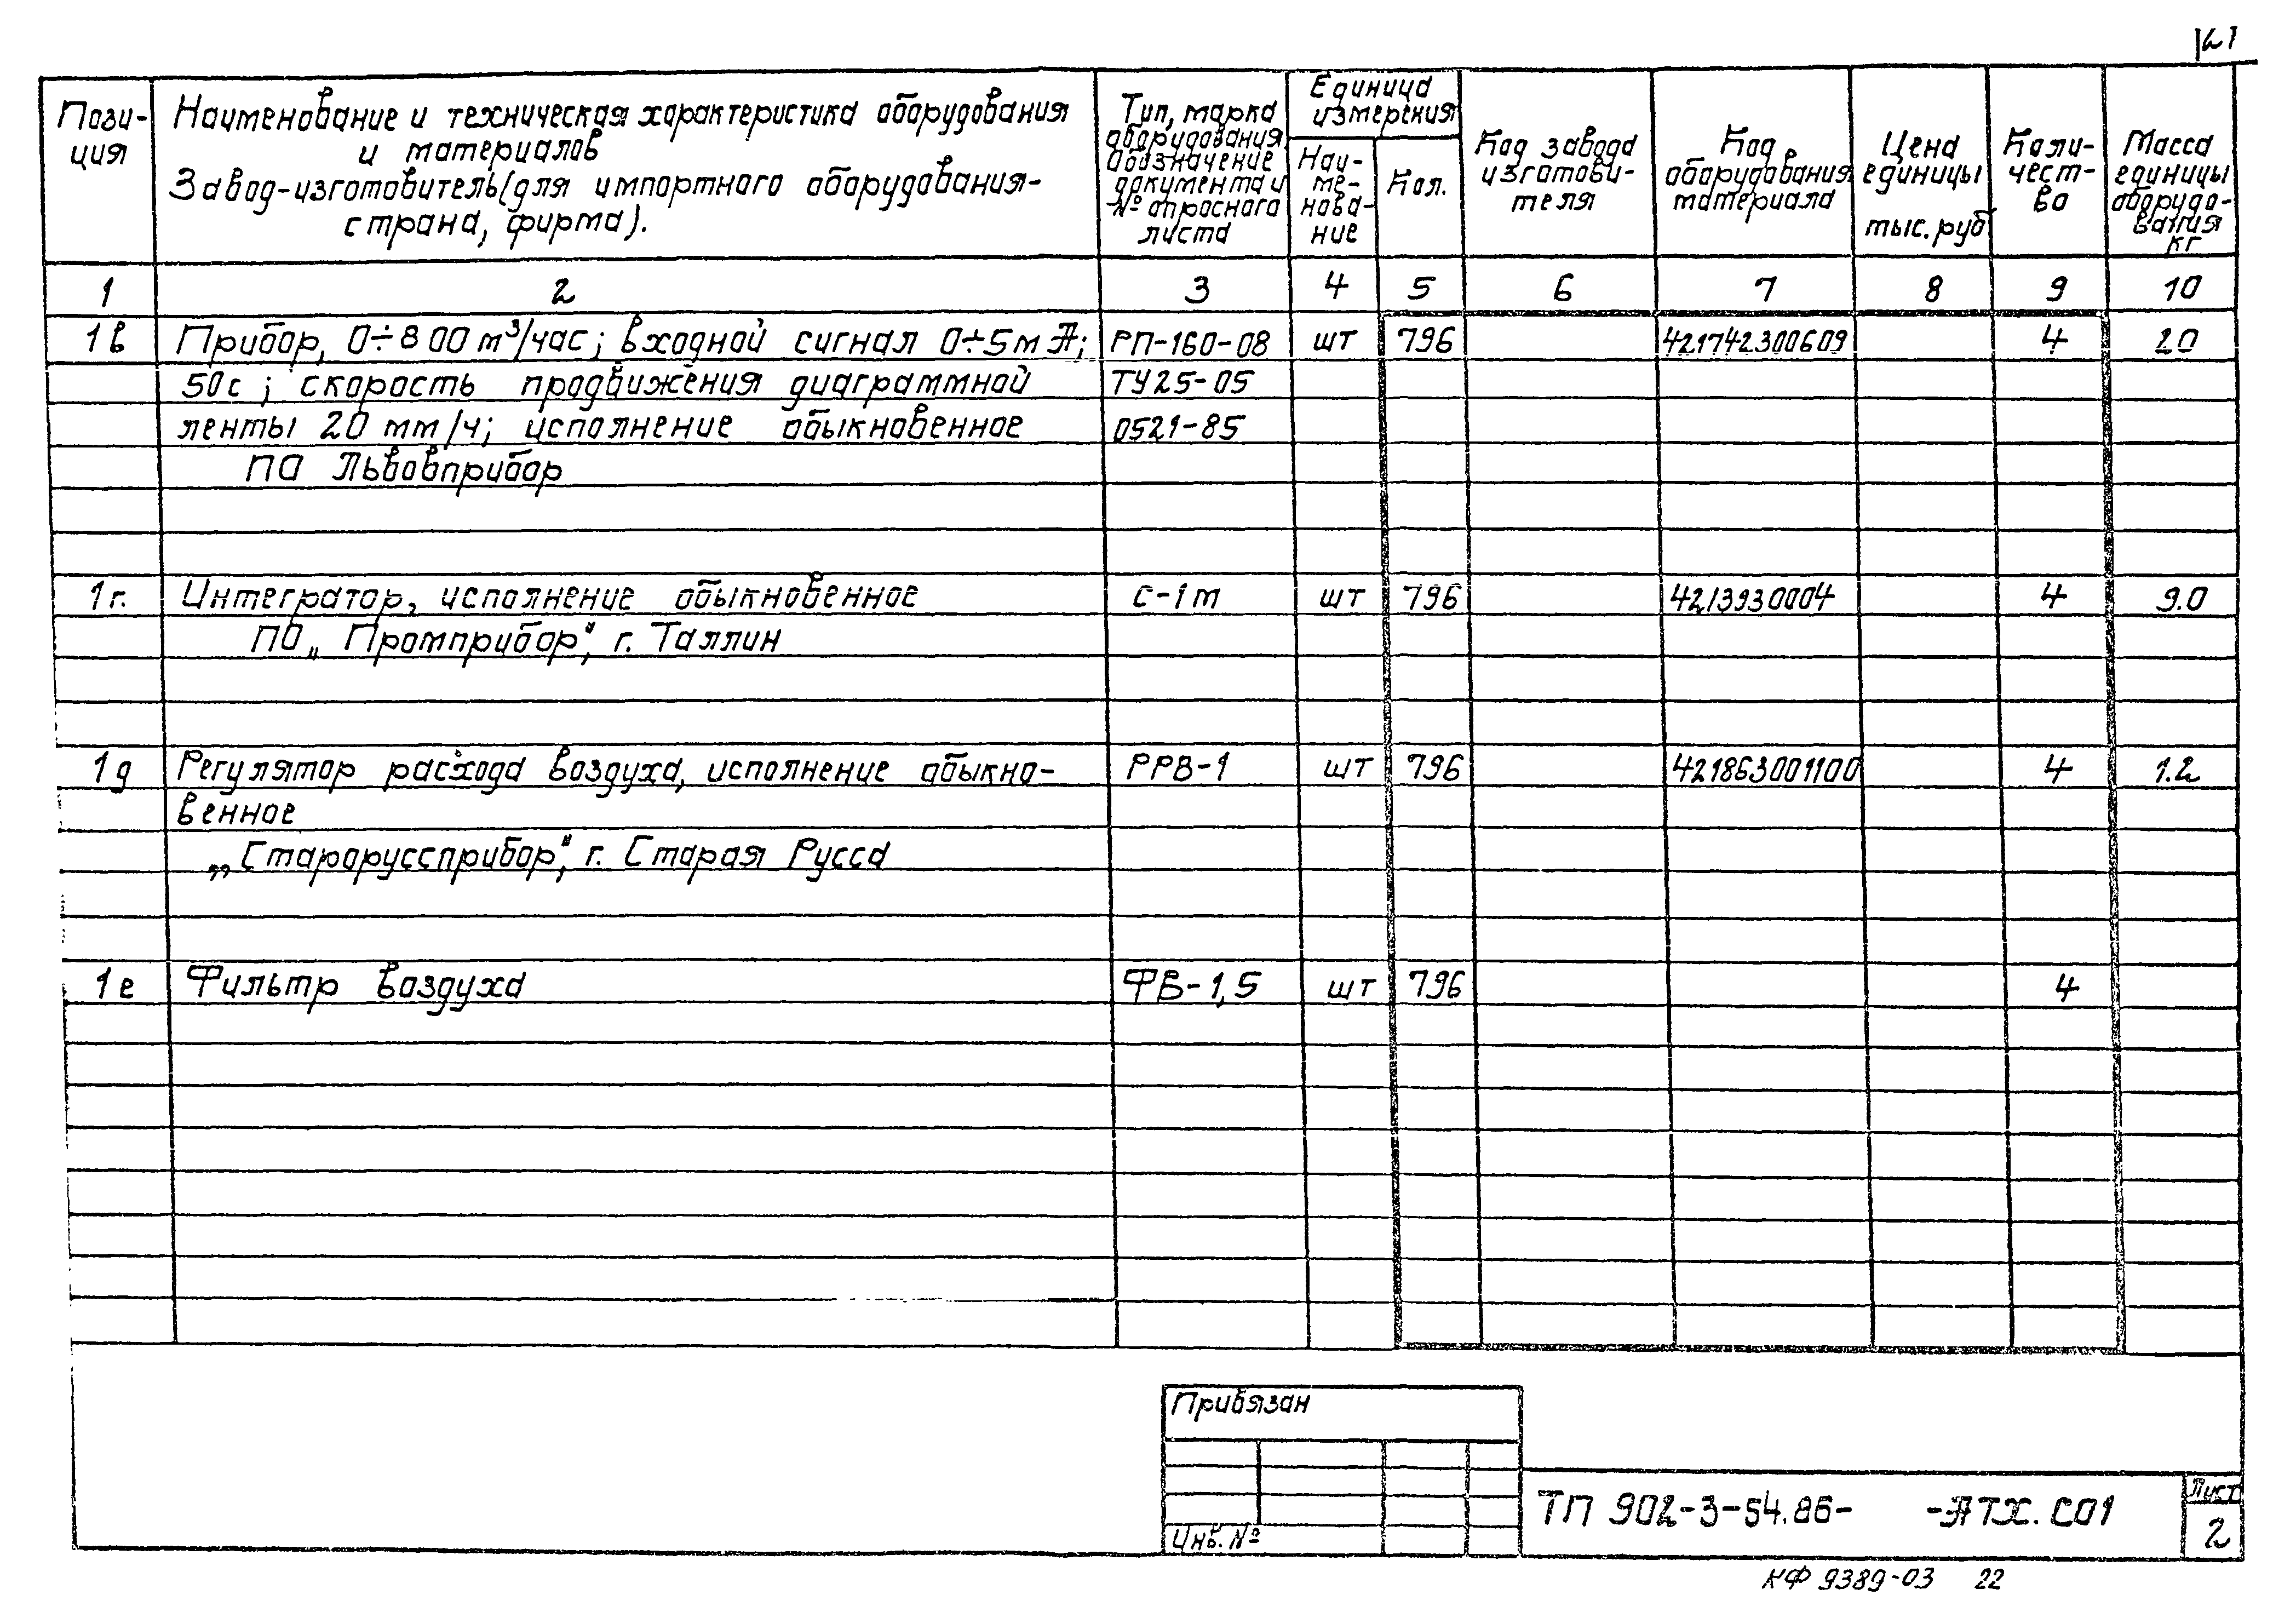 21
Пози-
ция
Наименование и техническая характеристика оборудования
и материалов
Завод-изготовитель (для импортного оборудования-
страна, фирма).
Тип, марка
оборудования
Обозначение
документа и
№ опросного
листа
Единица
измерения
Наи-
ме-
нова-
ние
Кол.
Код завода
изготови-
теля
Код
оборудования
материала
Цена
единицы
тыс. руб
Коли-
чест-
во
Масса
единицы
оборудо-
вания
кг
1 2 3 4 5 6 7 8 9 10
1в Прибор, 0÷800 м³/час; входной сигнал 0÷5мА; РП-160-08 шт 796 421742300609 4 20
50с; скорость продвижения диаграммной ТУ25-05
ленты 20 мм/ч; исполнение обыкновенное 0521-85
ПО Львовприбор
1г. Интегратор, исполнение обыкновенное С-1м шт 796 4213930004 4 9.0
ПО „Промприбор", г. Таллин
1д Регулятор расхода воздуха, исполнение обыкно- РРВ-1 шт 796 421863001100 4 1.2
венное
„Старорусприбор", г. Старая Русса
1е Фильтр воздуха ФВ-1,5 шт 796 4
Привязан
Инв. №
ТП 902-3-54.86- -АТХ.СО1
Лист
2
КФ 9389-03 22